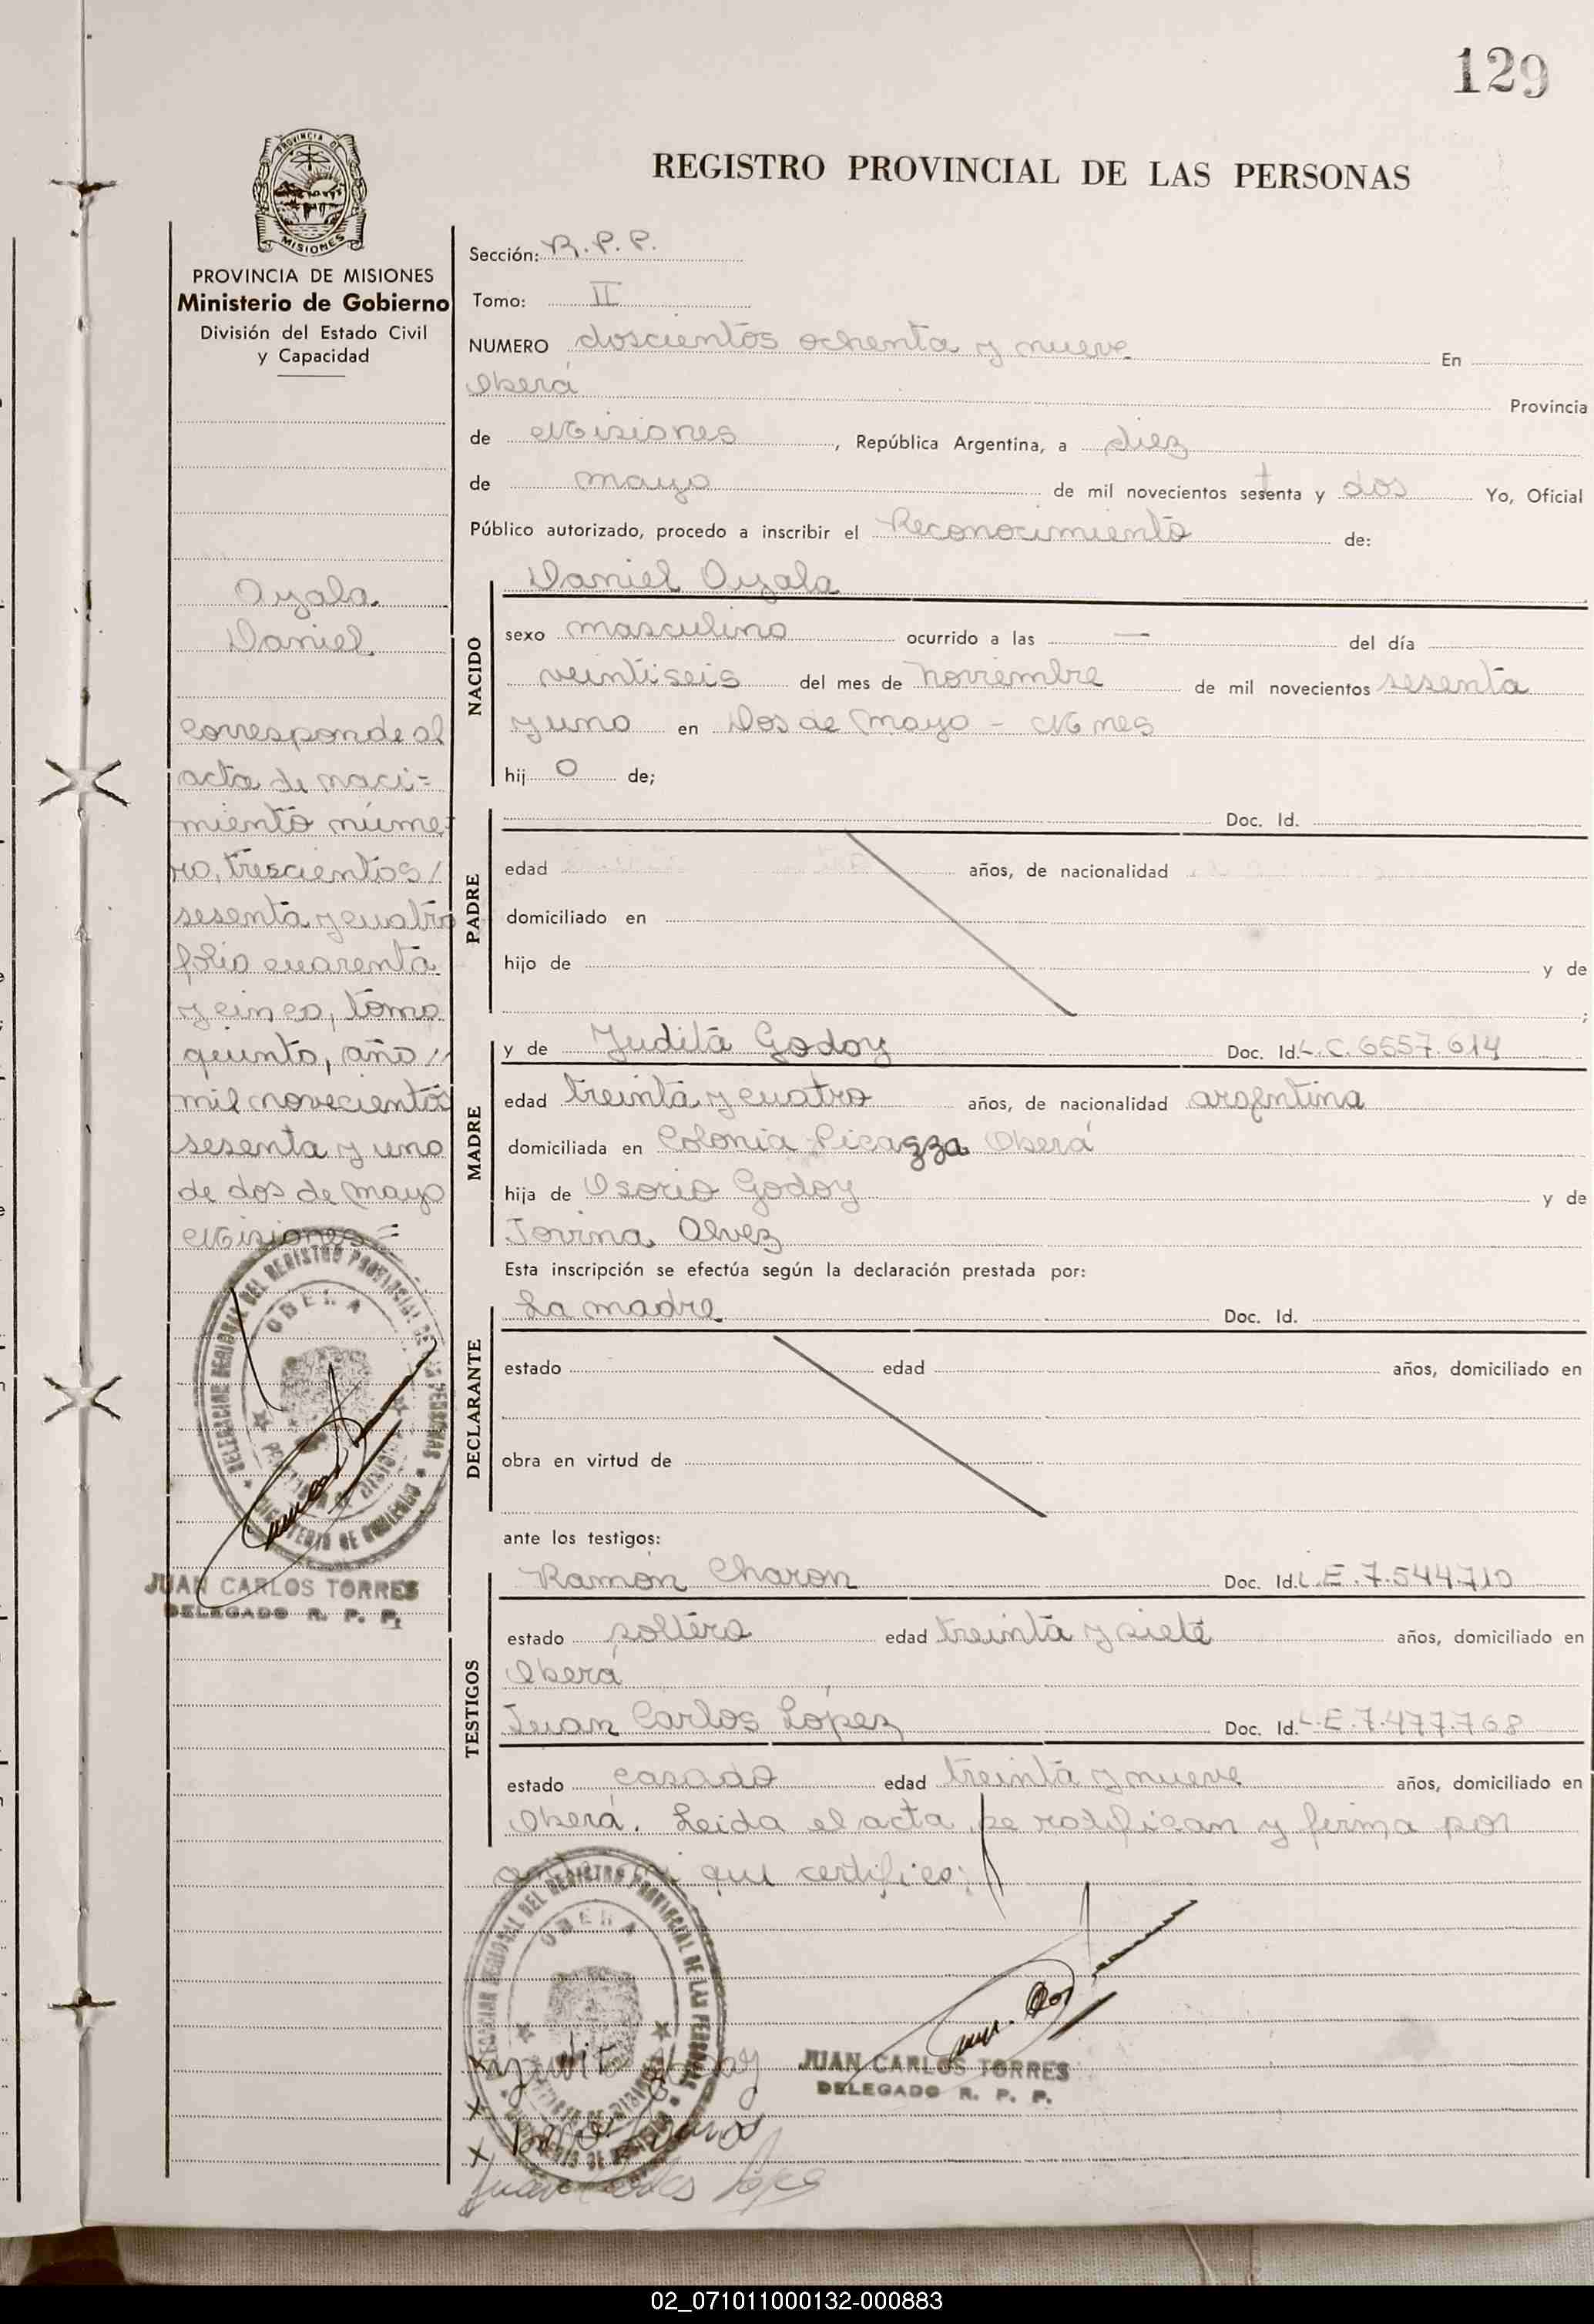 129
REGISTRO PROVINCIAL DE LAS PERSONAS
PROVINCIA DE MISIONES
Ministerio de Gobierno
División del Estado Civil
y Capacidad
Ayala
Daniel
corresponde al
acta de naci=
miento núme=
ro, trescientos/
sesenta y cuatro
folio cuarenta
y cinco, tomo
quinto, año //
mil novecientos
sesenta y uno
de dos de mayo
Misiones =
DELEGACION REGIONAL DEL REGISTRO PROVINCIAL DE LAS PERSONAS
OBERA
MINISTERIO DE GOBIERNO
JUAN CARLOS TORRES
DELEGADO R. P. P.
Sección: R.P.P.
Tomo: II
NUMERO doscientos ochenta y nueve En
Oberá Provincia
de Misiones, República Argentina, a diez
de mayo de mil novecientos setenta y dos Yo, Oficial
Público autorizado, procedo a inscribir el Reconocimiento de:
NACIDO
Daniel Ayala
sexo masculino ocurrido a las — del día
veintiseis del mes de noviembre de mil novecientos sesenta
y uno en Dos de Mayo - Mnes
hij o de;
PADRE
Doc. Id.
edad años, de nacionalidad
domiciliado en
hijo de y de
;
MADRE
y de Judita Godoy Doc. Id. L.C. 6557.614
edad treinta y cuatro años, de nacionalidad argentina
domiciliada en Colonia Picazza Oberá
hija de Osorio Godoy y de
Jovina Alvez
Esta inscripción se efectúa según la declaración prestada por:
DECLARANTE
La madre Doc. Id.
estado edad años, domiciliado en
obra en virtud de
ante los testigos:
TESTIGOS
Ramón Charon Doc. Id. L.E. 7.544.710
estado soltero edad treinta y siete años, domiciliado en
Oberá
Juan Carlos López Doc. Id. L.E. 7.477.768
estado casado edad treinta y nueve años, domiciliado en
Oberá. Leida el acta se ratifican y firma por
que certifico;
DELEGACION REGIONAL DEL REGISTRO PROVINCIAL DE LAS PERSONAS
OBERA
JUAN CARLOS TORRES
DELEGADO R. P. P.
Juan Carlos López
02_071011000132-000883